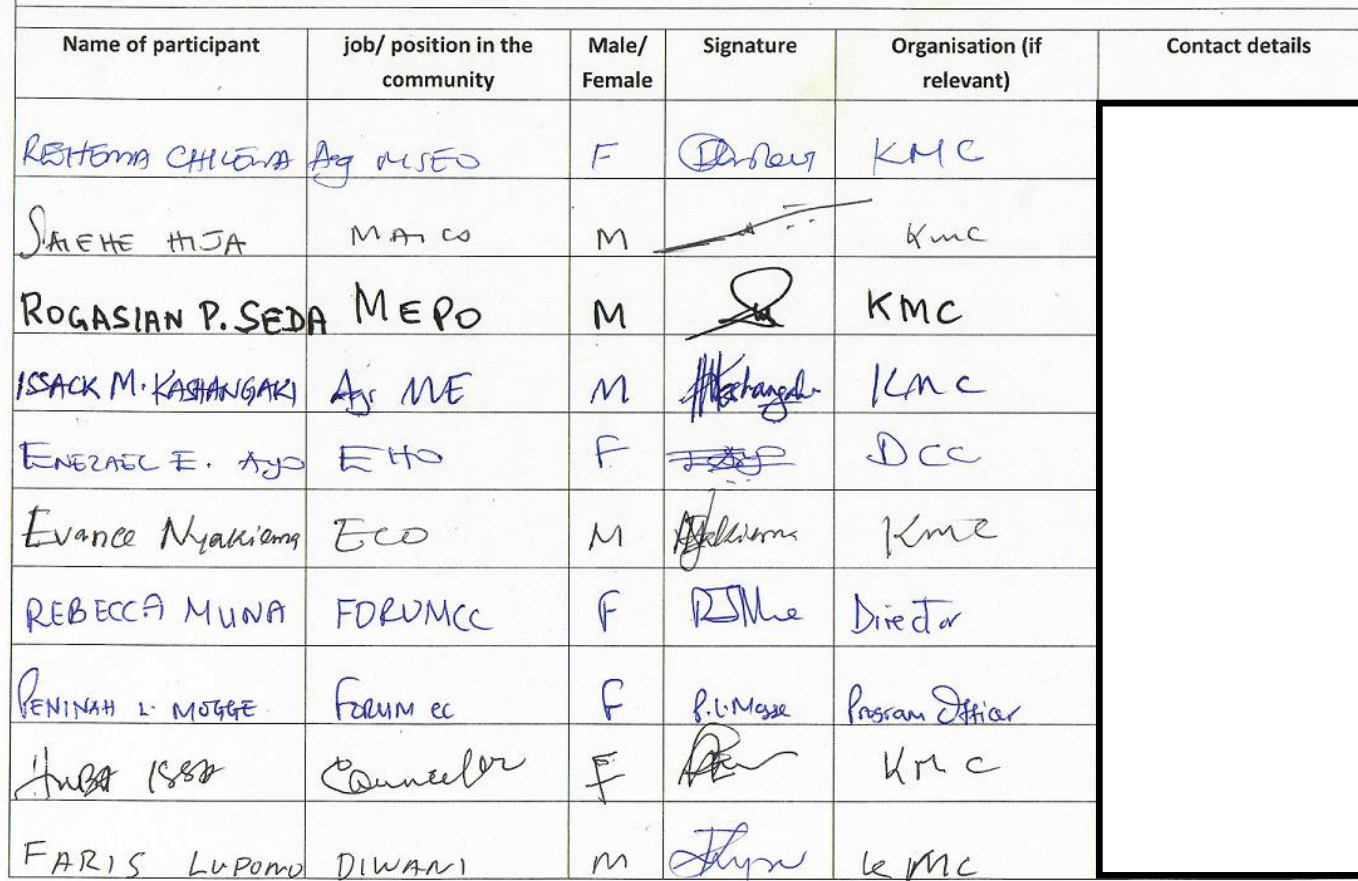 Name of participant job/ position in the community Male/ Female Signature Organisation (if relevant) Contact details
REHEMA CHILEWA Ag MSEO F KMC
SALEHE HIJA MAICO M KMC
ROGASIAN P. SEDA MEPO M KMC
ISSACK M. KASHANGAKI Ag ME M KMC
ENEZAEL E. Ayo EHO F DCC
Evance Nyakiama ECO M KMC
REBECCA MUNA FORUMCC F Director
PENINAH L. MOGGE FORUM CC F P.L.Mogge Program Officer
ISSA Councelor F KMC
FARIS LUPOMO DIWANI M KMC